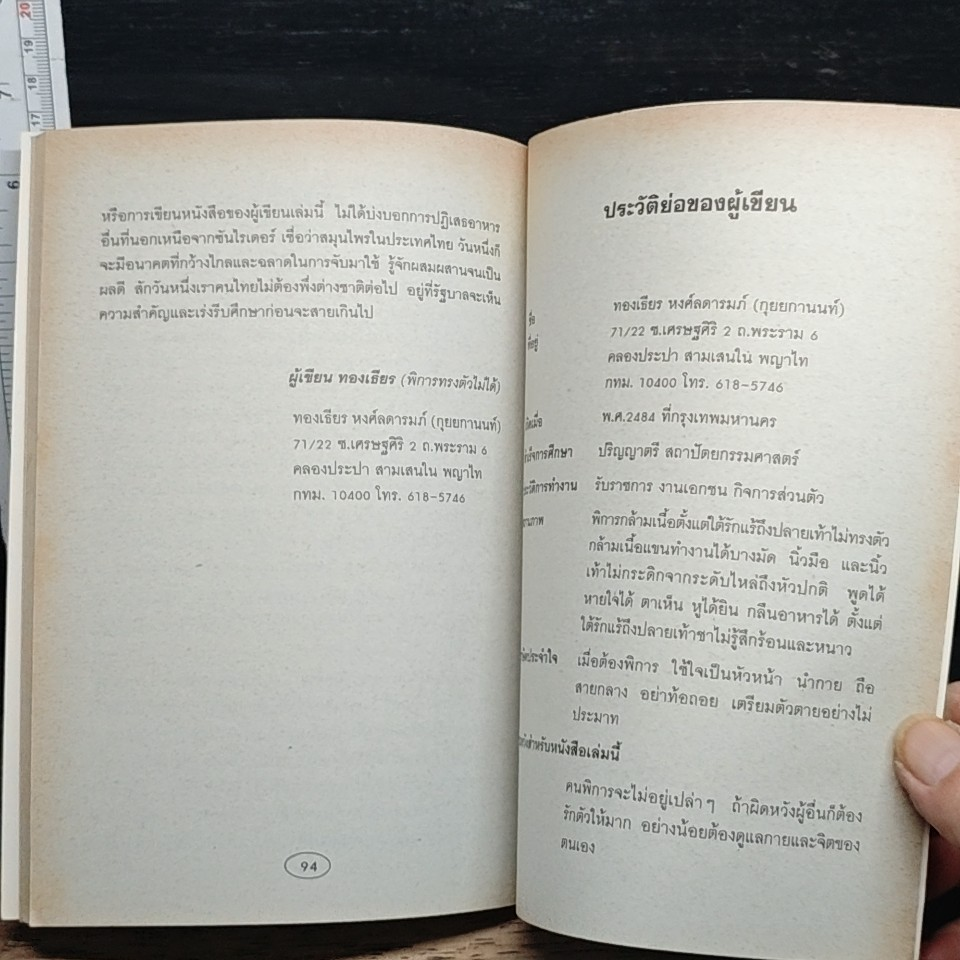 หรือการเขียนหนังสือของผู้เขียนเล่มนี้ ไม่ได้บ่งบอกการปฏิเสธอาหาร
อื่นที่นอกเหนือจากซันไรเดอร์ เชื่อว่าสมุนไพรในประเทศไทย วันหนึ่งก็
จะมีอนาคตที่กว้างไกลและฉลาดในการจับมาใช้ รู้จักผสมผสานจนเป็น
ผลดี สักวันหนึ่งเราคนไทยไม่ต้องพึ่งต่างชาติต่อไป อยู่ที่รัฐบาลจะเห็น
ความสำคัญและเร่งรีบศึกษาก่อนจะสายเกินไป
ผู้เขียน ทองเธียร (พิการทรงตัวไม่ได้)
ทองเธียร หงศ์ลดารมภ์ (กุยยกานนท์)
71/22 ซ.เศรษฐศิริ 2 ถ.พระราม 6
คลองประปา สามเสนใน พญาไท
กทม. 10400 โทร. 618-5746
94
ประวัติย่อของผู้เขียน
ชื่อ ทองเธียร หงศ์ลดารมภ์ (กุยยกานนท์)
ที่อยู่ 71/22 ซ.เศรษฐศิริ 2 ถ.พระราม 6
คลองประปา สามเสนใน พญาไท
กทม. 10400 โทร. 618-5746
เกิดเมื่อ พ.ศ.2484 ที่กรุงเทพมหานคร
การศึกษา ปริญญาตรี สถาปัตยกรรมศาสตร์
การทำงาน รับราชการ งานเอกชน กิจการส่วนตัว
พิการกล้ามเนื้อตั้งแต่ใต้รักแร้ถึงปลายเท้าไม่ทรงตัว
กล้ามเนื้อแขนทำงานได้บางมัด นิ้วมือ และนิ้ว
เท้าไม่กระดิกจากระดับไหล่ถึงหัวปกติ พูดได้
หายใจได้ ตาเห็น หูได้ยิน กลืนอาหารได้ ตั้งแต่
ใต้รักแร้ถึงปลายเท้าชาไม่รู้สึกร้อนและหนาว
ประจำใจ เมื่อต้องพิการ ใช้ใจเป็นหัวหน้า นำกาย ถือ
สายกลาง อย่าท้อถอย เตรียมตัวตายอย่างไม่
ประมาท
สำหรับหนังสือเล่มนี้
คนพิการจะไม่อยู่เปล่าๆ ถ้าผิดหวังผู้อื่นก็ต้อง
รักตัวให้มาก อย่างน้อยต้องดูแลกายและจิตของ
ตนเอง
20
19
18
17
7
6